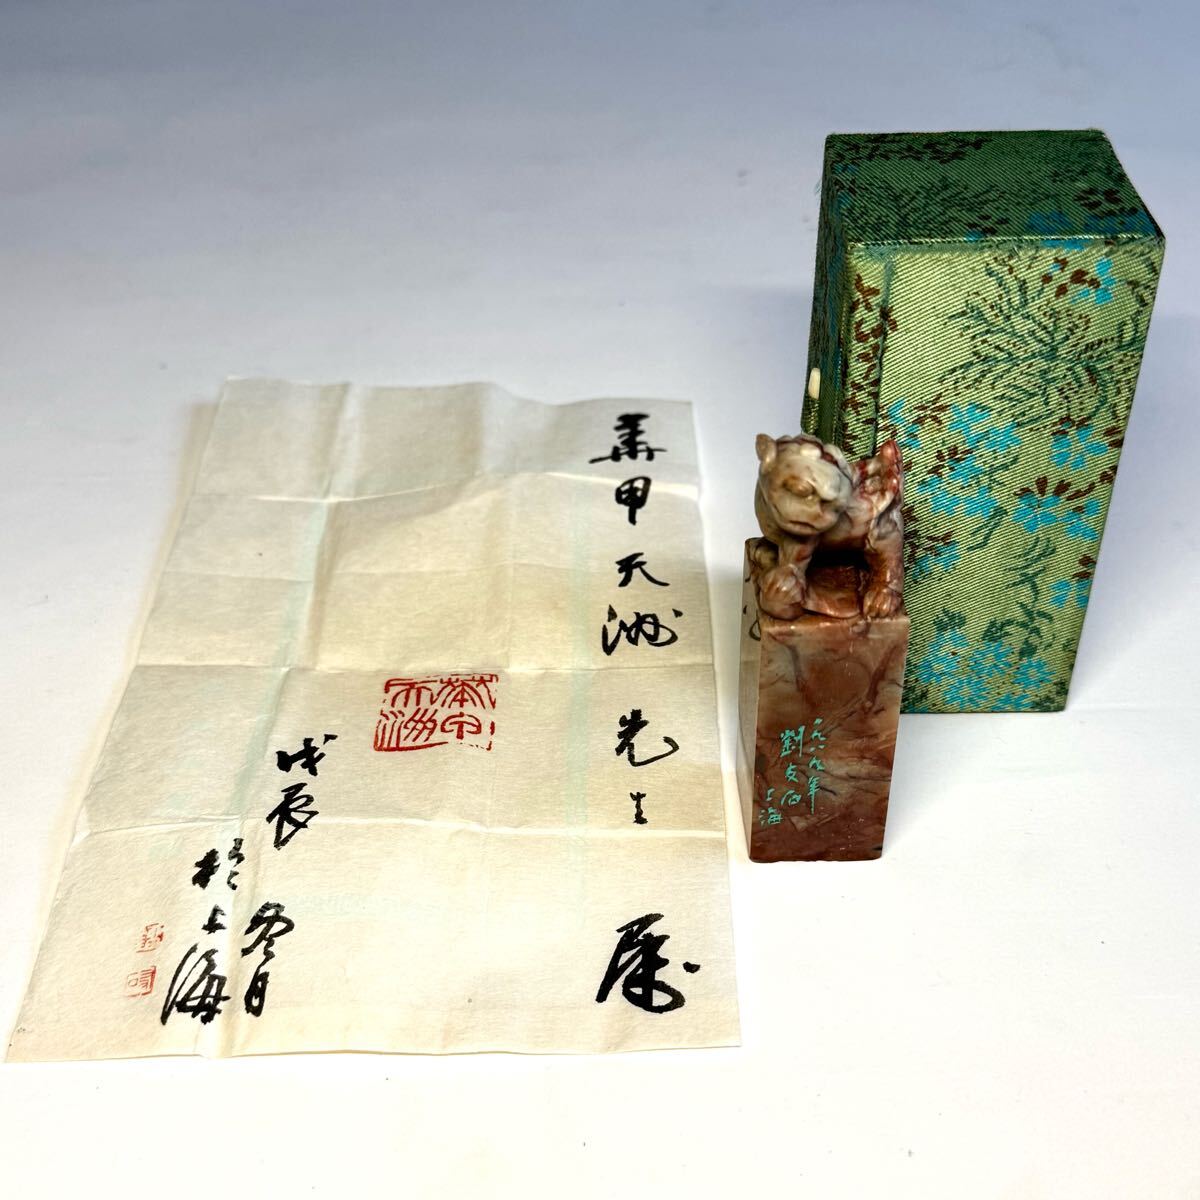 甲天洲先生属
戊辰冬月
於上海
甲天洲
一九八九年
劉友石
上海